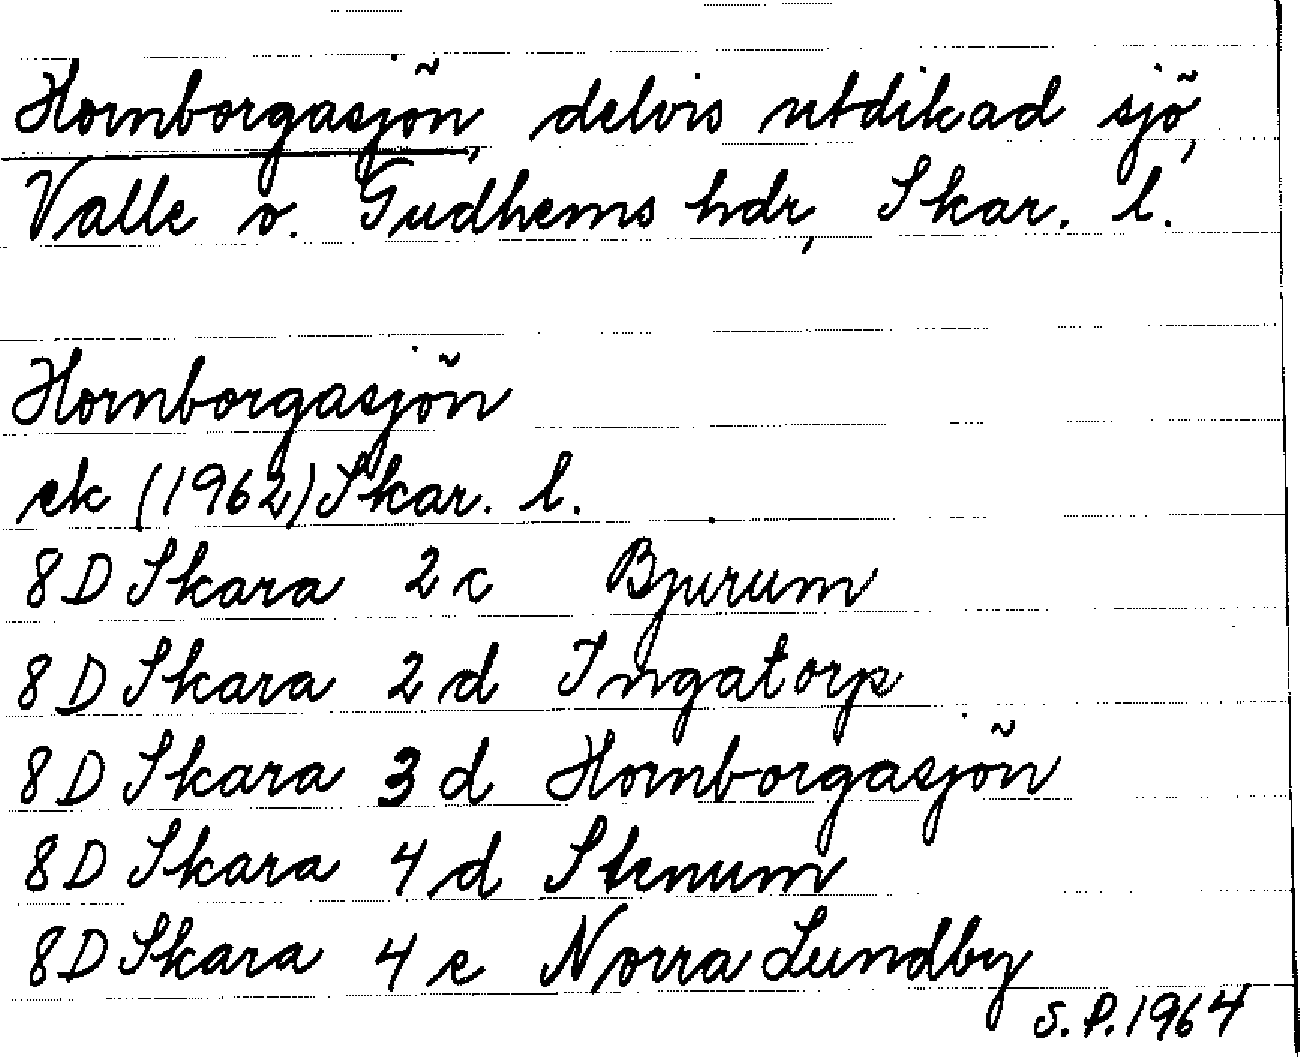 Hornborgasjön, delvis utdikad sjö,
Valle o. Gudhems hdr, Skar. l.
Hornborgasjön
ek (1962) Skar. l.
8D Skara 2c Bjurum
8D Skara 2d Ingatorp
8D Skara 3d Hornborgasjön
8D Skara 4d Stenum
8D Skara 4e Norra Lundby
S.P. 1964